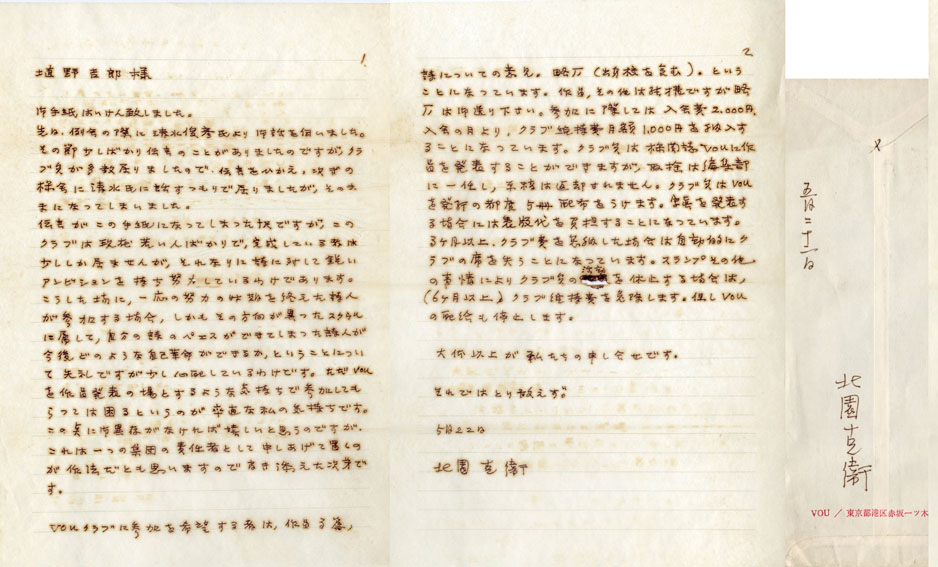 1.
埴野吉郎様
御手紙はいけん致しました。
先日、例会の際に清水俊彦氏より御話を伺いました。
その節少しばかり伝言のことがありましたのですが、クラ
ブ員が多数居りましたので、伝言をひかえ、次ぎの
機会に清水氏に話すつもりで居りましたが、そのま
まになってしまいました。
伝言がこの手紙になってしまった訳ですが、この
クラブは現在若い人ばかりで、完成している者は
少ししか居ませんが、それなりに詩に対して鋭い
アンビションを持ち努力しているわけであります。
こうした場に、一応の努力の時期を終えた詩人
が参加する場合、しかもその方向が異ったスタイル
に属して、自分の詩のペエスができてしまった詩人が
今後どのような自己革命ができるか、ということについ
て失礼ですが少し心配しているわけです。ただVOU
を作品発表の場とするような気持ちで参加しても
らっては困るというのが卒直な私の気持ちです。
この点に御異存がなければ嬉しいと思うのですが、
これは一つの集団の責任者として申しあげて置くの
が作法だとも思いますので書き添えた次第で
す。
VOUクラブに参加を希望する者は、作品3篇、
2
詩についての考え。略歴(出身校を含む)。という
ことになっています。作品、その他は結構ですが略
歴は御送り下さい。参加に際しては入会費2.000円、
入会の月より、クラブ維持費月額1.000円を納入す
ることになっています。クラブ員は機関誌VOUに作
品を発表することができますが、取捨は編集部
に一任し、原稿は返却されません。クラブ員はVOU
を発行の都度5冊配布をうけます。写真を発表す
る場合には製版代を負担することになっています。
3ヶ月以上、クラブ費を怠納した場合は自動的にク
ラブの席を失うことになっています。スランプその他
の事情によりクラブ員の活動を休止する場合は、
(6ヶ月以上)クラブ維持費を免除します。但しVOU
の配給も停止します。
大体以上が私たちの申し合せです。
それではとり敢えず。
5月22日
北園克衛
五月二十二日
北園克衛
VOU / 東京都港区赤坂一ツ木